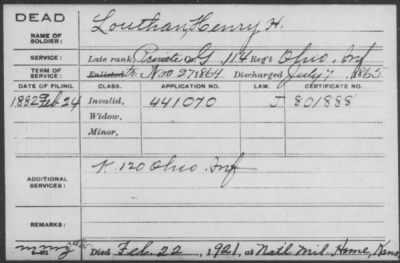 DEAD
NAME OF SOLDIER: Louthan, Henry H.
SERVICE: Late rank, Private G, 114 Reg't Ohio Inf
TERM OF SERVICE: Enlisted Nov 27 1864 Discharged July 7, 1865
DATE OF FILING. CLASS. APPLICATION NO. LAW. CERTIFICATE NO.
1882 Feb 24 Invalid, 441070 J 801888
Widow,
Minor,
ADDITIONAL SERVICES: K. 120 Ohio Inf
REMARKS:
Died Feb. 22, 1921, at Natl. Mil. Home, Kans